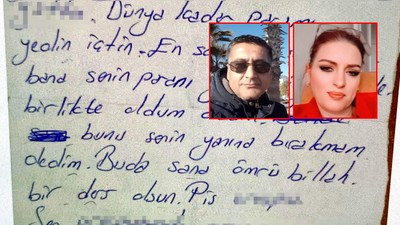 Dünya kadar paramı
yedin içtin. En so
bana senin paranı
birlikte oldum
bunu senin yanına bırakmam
dedim. Buda sana ömrü billah
bir ders olsun. Pis
Sen